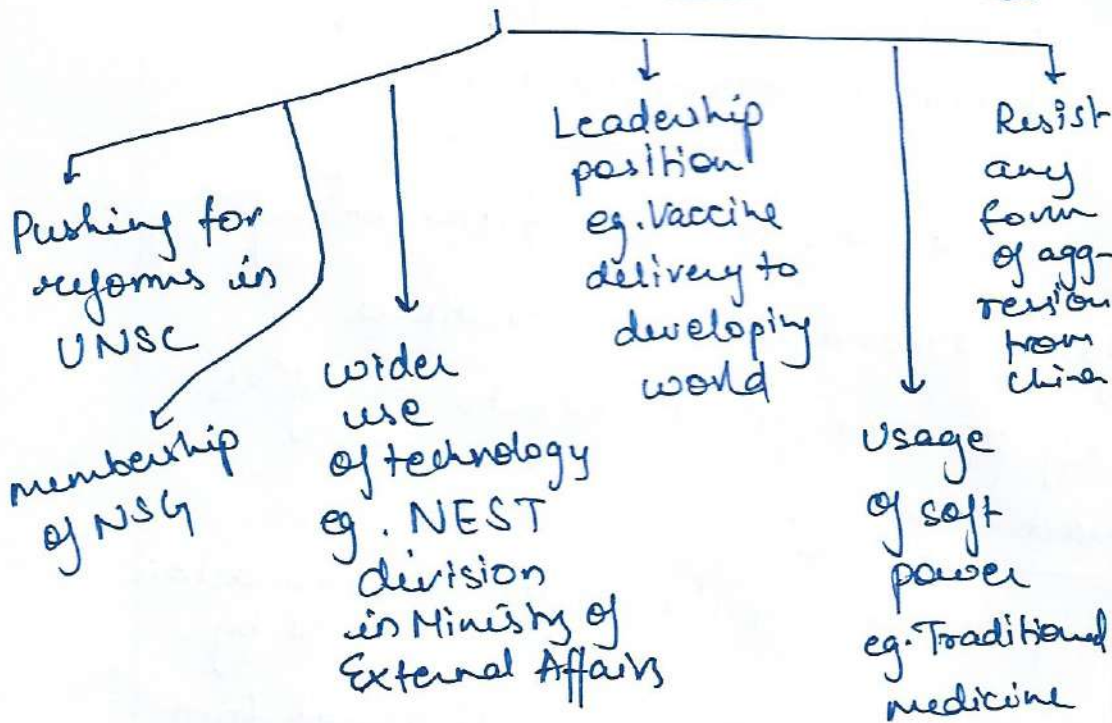 Pushing for
reforms in
UNSC
membership
of NSG
wider
use
of technology
eg. NEST
division
in Ministry of
External Affairs
Leadership
position
eg. Vaccine
delivery to
developing
world
Usage
of soft
power
eg. Traditional
medicine
Resist
any
form
of agg-
ression
from
China